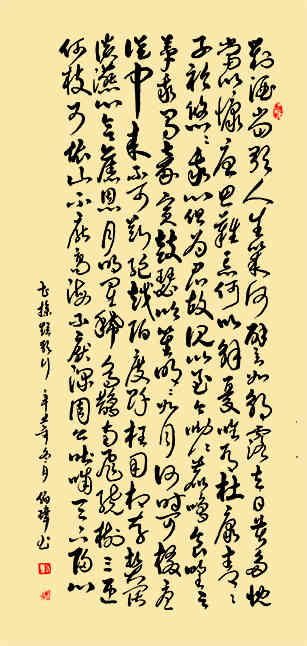 對酒當歌人生幾何譬如朝露去日苦多慨
當以慷憂思難忘何以解憂唯有杜康青青
子衿悠悠我心但為君故沉吟至今呦呦鹿鳴食野之
苹我有嘉賓鼓瑟吹笙明明如月何時可掇憂
從中來不可斷絕越陌度阡枉用相存契闊
談讌心念舊恩月明星稀烏鵲南飛繞樹三匝
何枝可依山不厭高海不厭深周公吐哺天下歸心
曹操短歌行 辛丑年冬月 書